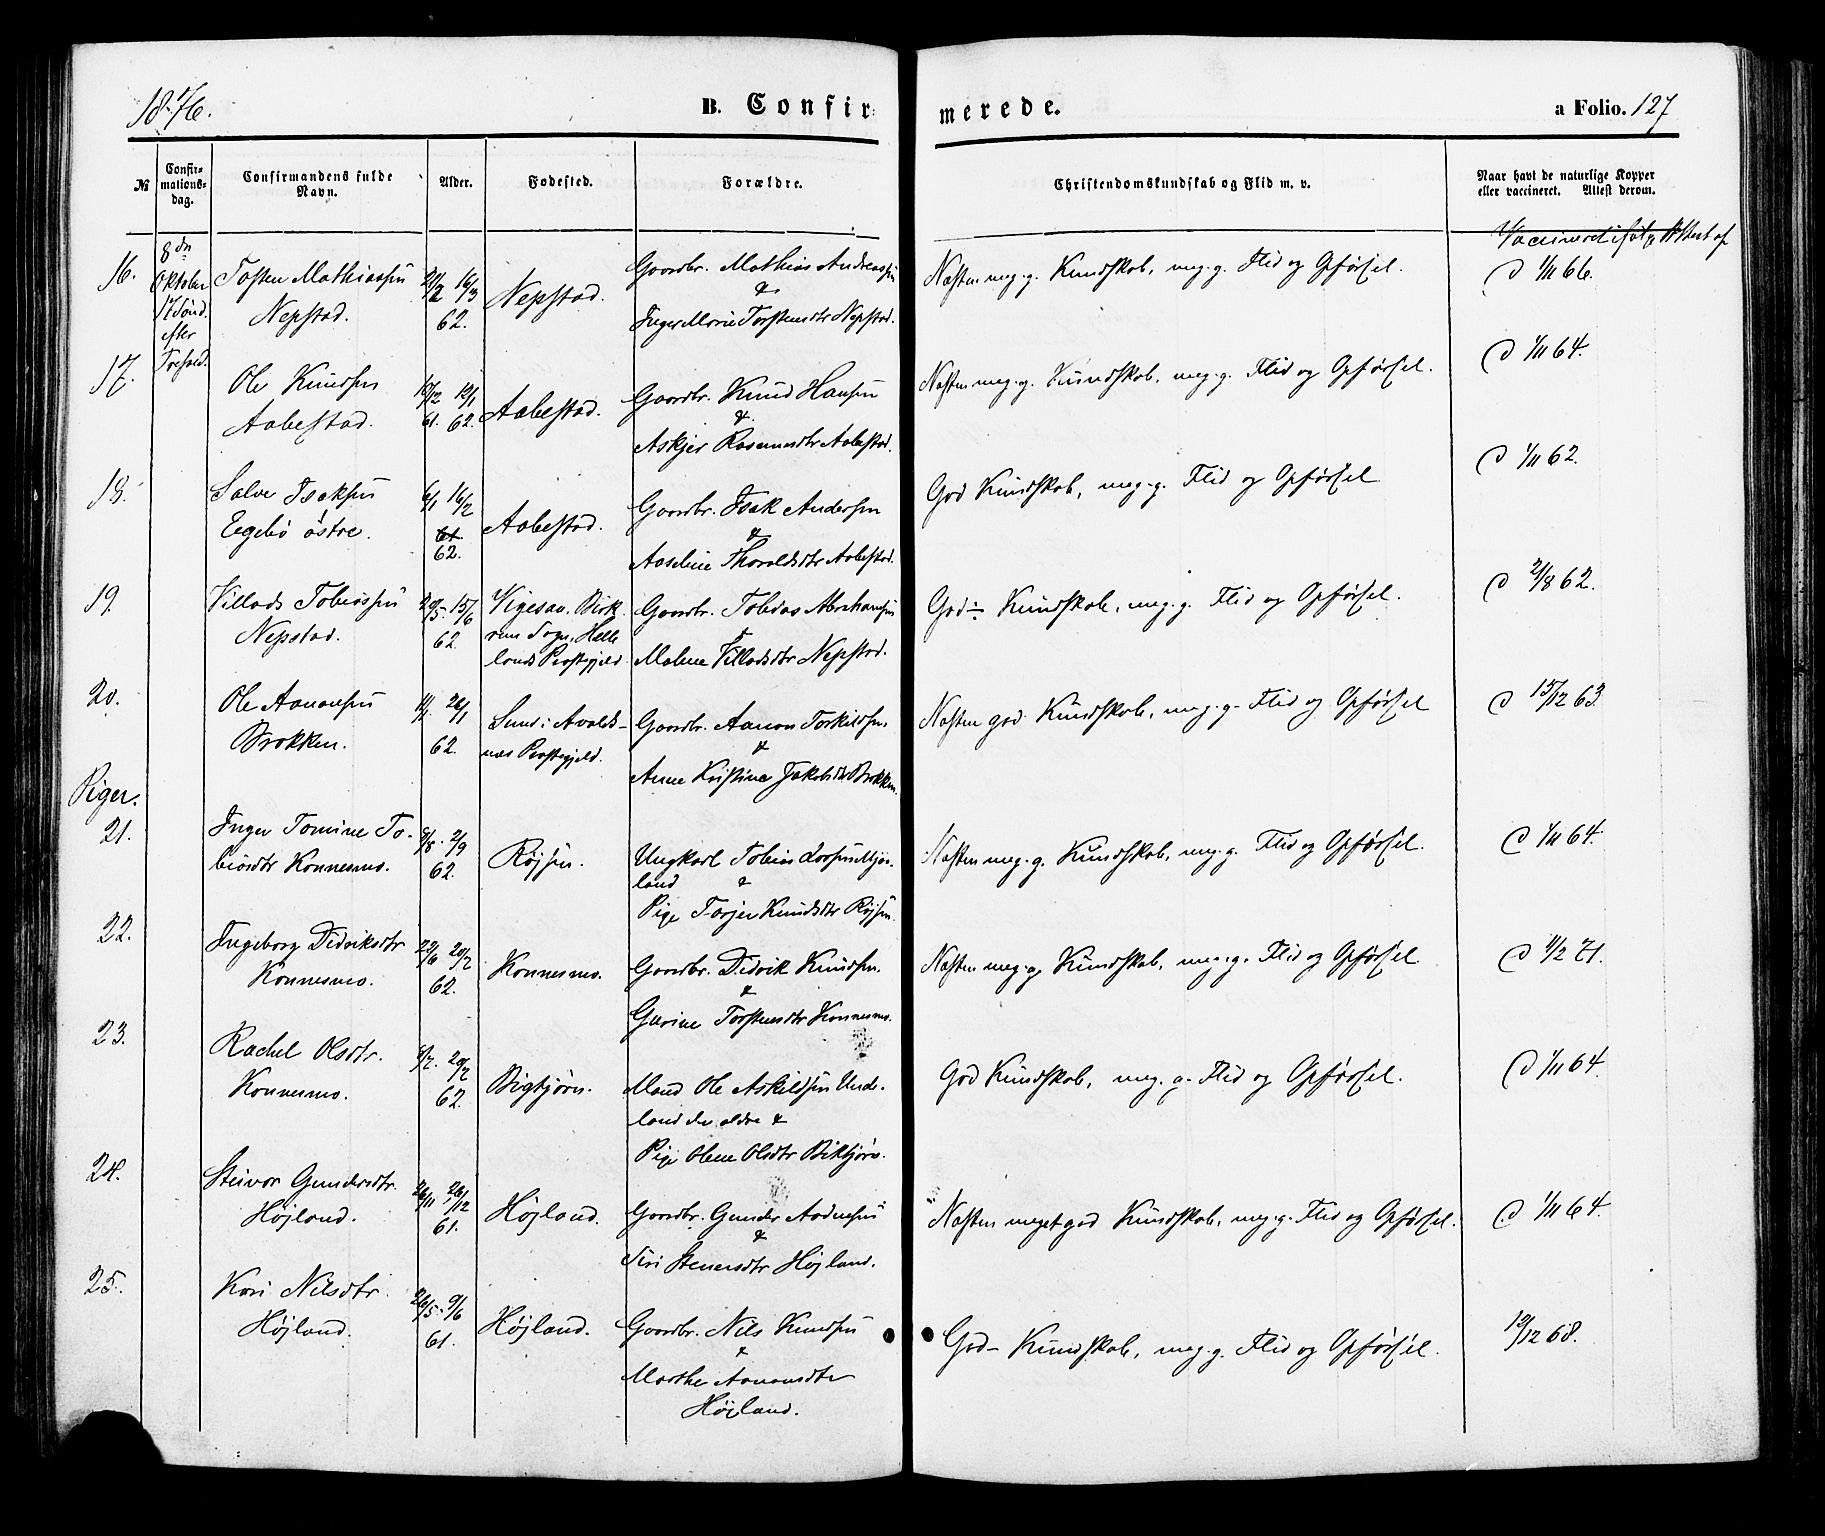 1876.
B. Confir
merede.
a Folio. 127
№
Confir-
mations-
dag.
Confirmandens fulde
Navn.
Alder.
Fødested.
Forældre.
Christendomskundskab og Flid m. v.
Naar havt de naturlige Kopper
eller vaccineret. Attest derom.
Vaccineret ifølg Attest af
8de
Oktober
17 Sønd.
efter
Trefold.
16.
Tosten Mathiassen
Nepstad.
21/2 16/3
62.
Nepstad.
Gaardbr. Mathias Andreassen
&
Inger Marie Torstensdtr Nepstad.
Næsten meg. g. Kundskab, meg. g. Flid og Opførsel.
d 1/11 66.
17.
Ole Knudsen
Aabestad.
12/1
61. 62.
Aabestad.
Gaardbr. Knud Hansen
&
Askjer Rasmusdtr Aabestad.
Næsten meg. g. Kundskab, meg. g. Flid og Opførsel.
d 1/11 64.
18.
Salve Isaksen
Egebø østre.
6/1 16/2
61.
62.
Aabestad.
Gaardbr. Isak Andersen
&
Aaseline Thoraldsdtr Aabestad.
God Kundskab, meg. g. Flid og Opførsel
d 1/11 62.
19.
Villads Tobiassen
Nepstad.
20/5 - 15/6
62.
Vigesaa, Birk-
rem Sogn, Helle
lands Præstegjeld
Gaardbr. Tobias Abrahamsen
&
Malene Villadsdtr Nepstad.
God ÷ Kundskab, meg. g. Flid og Opførsel.
d 2/8 62.
20.
Ole Aanonsen
Brokken.
26/1
62.
Sund i Avalds-
næs Præstegjeld.
Gaardbr. Aanon Torkildsen
&
Anne Kristine Jakobsdtr Brokken.
Næsten god Kundskab, meg. g. Flid og Opførsel
d 15/12 63.
Piger.
21.
Inger Tomine To-
biasdtr Konnesmo.
8/8 - 2/9
62.
Røjsen.
Ungkarl Tobias Larsen Mjø-
land &
Pige Torjer Knudsdtr Røjsen.
Næsten meg. g. Kundskab, meg. g. Flid og Opførsel.
d 1/11 64.
22.
Ingeborg Didriksdtr
Konnesmo.
22/6 20/7
62.
Konnesmo.
Gaardbr. Didrik Knudsen.
&
Gurine Torstensdtr Konnesmo.
Næsten meg. g. Kundskab, meg. g. Flid og Opførsel
d 4/2 71.
23.
Rachel Olsdtr.
Konnesmo.
8/7. 20/7
62.
Bigtjørn.
Mand Ole Askildsen Und-
land den ældre &
Pige Olene Olsdtr Biktjørn.
God Kundskab, meg. g. Flid og Opførsel.
d 1/11 64.
24.
Steinvor Gundersdtr.
Højland.
26/11 26/12
61.
Højland.
Gaardbr. Gunder Aadnesen
&
Siri Stenersdtr Højland.
Næsten meget god Kundskab, meg. g. Flid og Opførsel.
d 1/11 64.
25.
Kari Nilsdtr
Højland.
26/5 - 9/6
61.
Højland.
Gaardbr. Nils Knudsen
&
Marthe Aanonsdtr
Højland.
God - Kundskab, meg. g. Flid og Opførsel.
12/12 68.